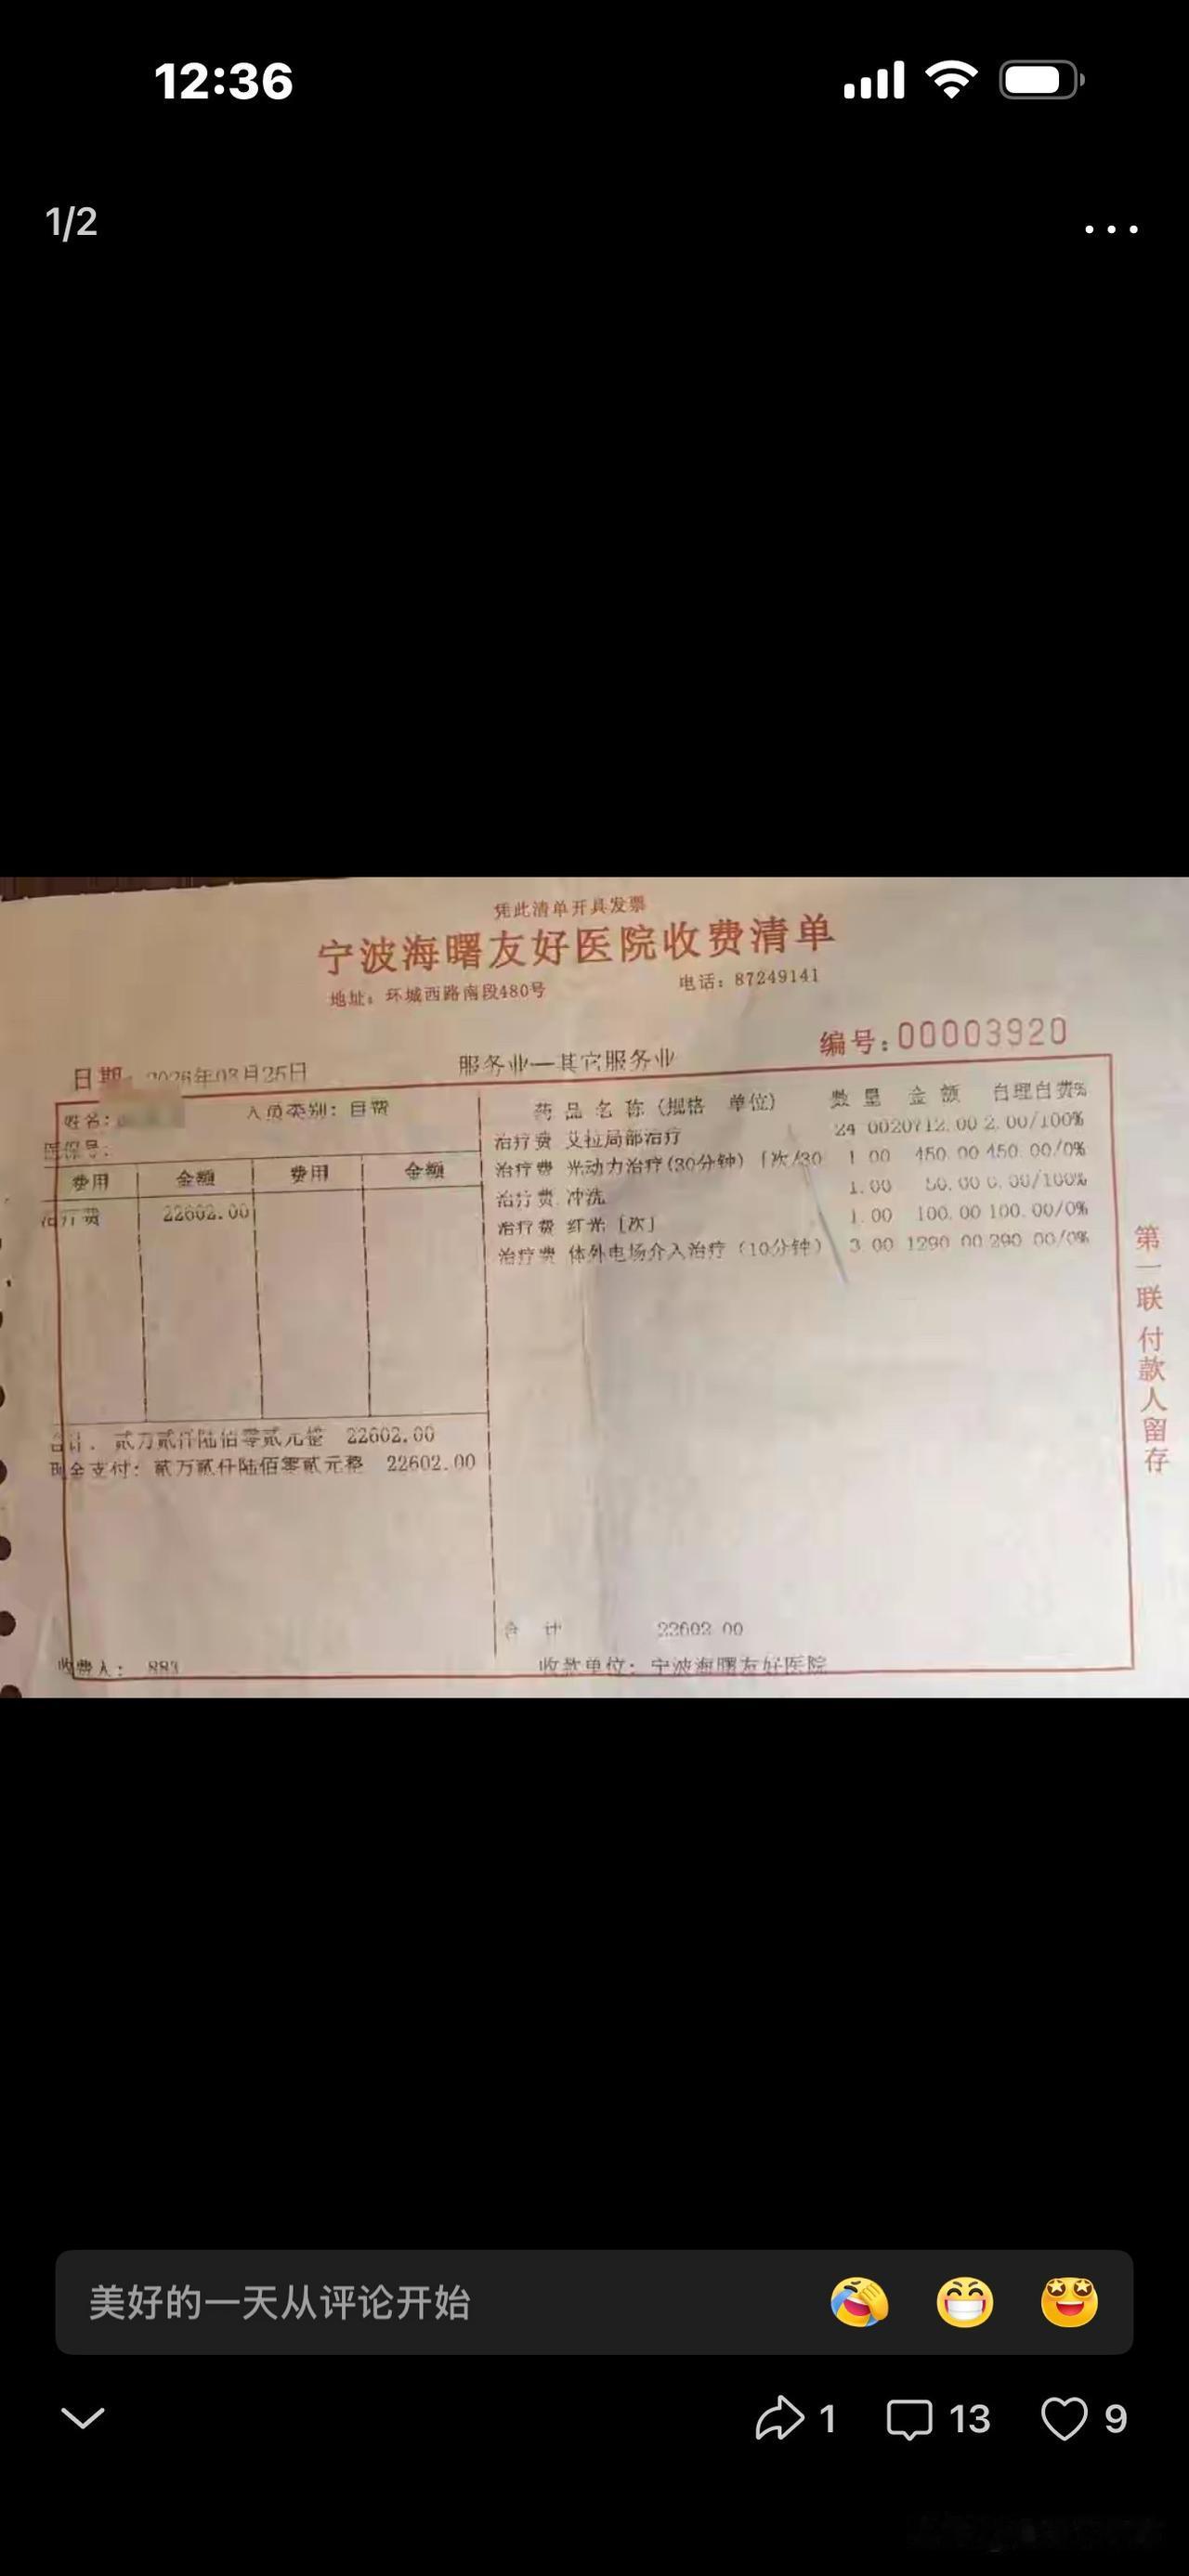 12:36
1/2
凭此清单开具发票
宁波海曙友好医院收费清单
地址：环城西路南段480号
电话：87249141
编号：00003920
日期：2026年03月25日
服务业—其它服务业
姓名：
人员类别：自费
医保号：
费用 金额 费用 金额
治疗费 22602.00
药品名称（规格 单位） 数量 金额 自理自费%
治疗费 艾拉局部治疗 24.0020712.00 2.00/100%
治疗费 光动力治疗(30分钟) [次/30 1.00 450.00 450.00/0%
治疗费 冲洗 1.00 50.00 0.00/100%
治疗费 红光 [次] 1.00 100.00 100.00/0%
治疗费 体外电场介入治疗（10分钟） 3.00 1290.00 290.00/0%
合计：贰万贰仟陆佰零贰元整 22602.00
现金支付：贰万贰仟陆佰零贰元整 22602.00
合计 22602.00
收费人： 883
收款单位：宁波海曙友好医院
第一联 付款人留存
美好的一天从评论开始
1
13
9